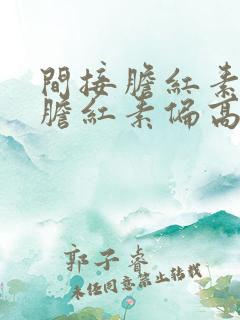 間接膽紅素
膽紅素偏高
郭子睿
未经同意禁止转载